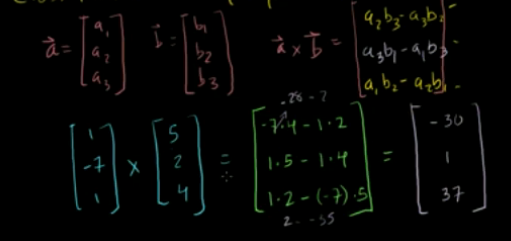 a⃗ = [a₁ a₂ a₃] b⃗ = [b₁ b₂ b₃] a⃗ × b⃗ = [a₂b₃ - a₃b₂ a₃b₁ - a₁b₃ a₁b₂ - a₂b₁]
-28 - 2
[1 -7 1] × [5 2 4] = [-7·4 - 1·2 1·5 - 1·4 1·2 - (-7)·5] = [-30 1 37]